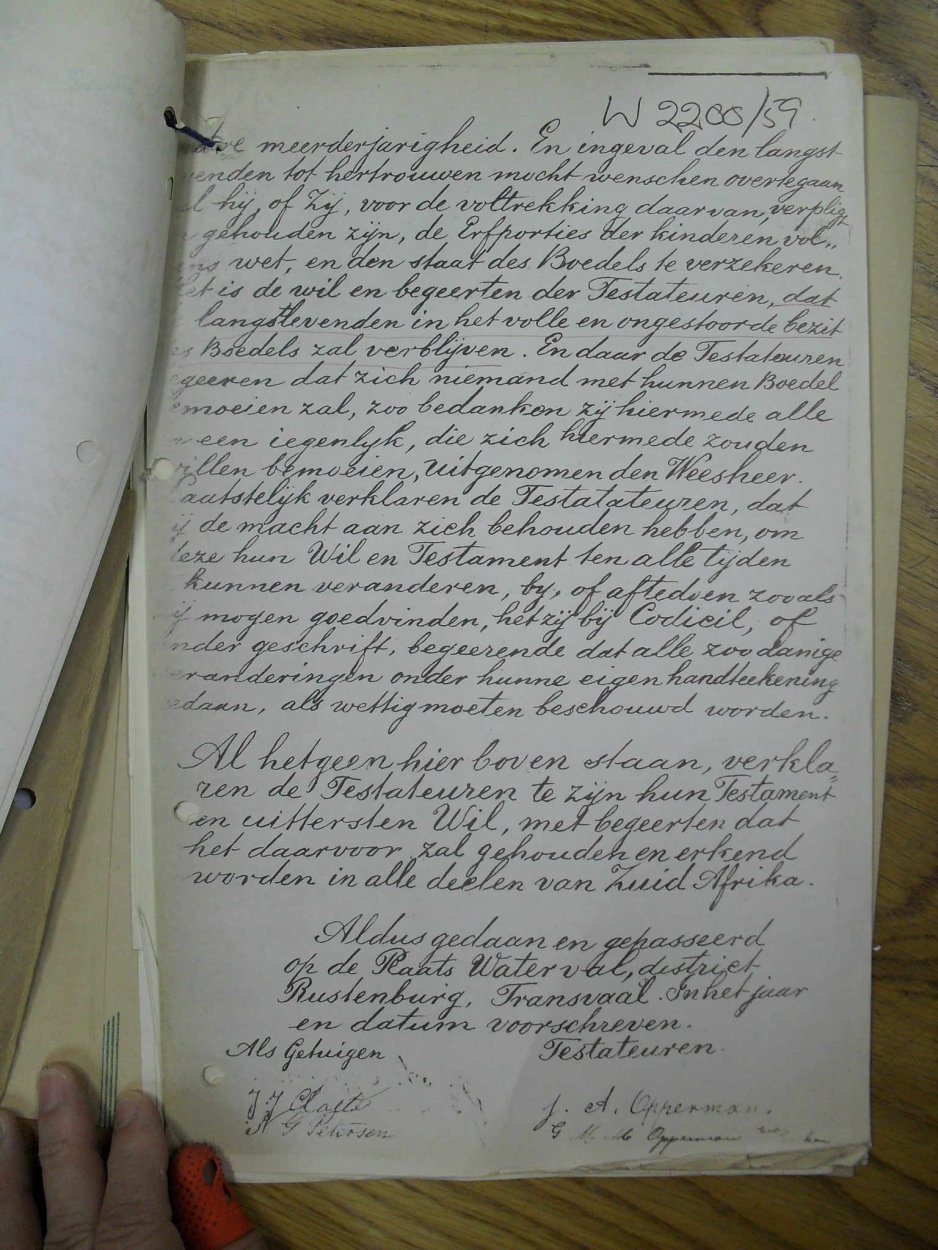 W 2200/59
meerderjarigheid. En ingeval den langst
venden tot hertrouwen mocht wenschen overtegaan
l hij, of Zij, voor de voltrekking daarvan, verpligt
gehouden zijn, de Erfporties der kinderen vol„
ens wet, en den staat des Boedels te verzekeren.
Het is de wil en begeerten der Testateuren, dat
langstlevenden in het volle en ongestoorde bezit
es Boedels zal verblijven. En daar de Testateuren
geeren dat zich niemand met hunnen Boedel
moeien zal, zoo bedanken zij hiermede alle
een iegenlyk, die zich hiermede zouden
villen bemoeien, Uitgenomen den Weesheer.
aatstelijk verklaren de Testatateuren, dat
ij de macht aan zich behouden hebben, om
deze hun Wil en Testament ten alle tijden
kunnen veranderen, by, of aftedoen zooals
ij mogen goedvinden, het zij bij Codicil, of
nder geschrift, begeerende dat alle zoodanige
eranderingen onder hunne eigen handteekening
edaan, als wettig moeten beschouwd worden.
Al hetgeen hier boven staan, verkla„
ren de Testateuren te zijn hun Testament
en uittersten Wil, met begeerten dat
het daarvoor zal gehouden en erkend
worden in alle deelen van Zuid Afrika.
Aldus gedaan en gepasseerd
op de Plaats Waterval, district
Rustenburg, Transvaal. In het jaar
en datum voorschreven.
Als Getuigen Testateuren.
J. A. Opperman.
G Petersen G M M Opperman